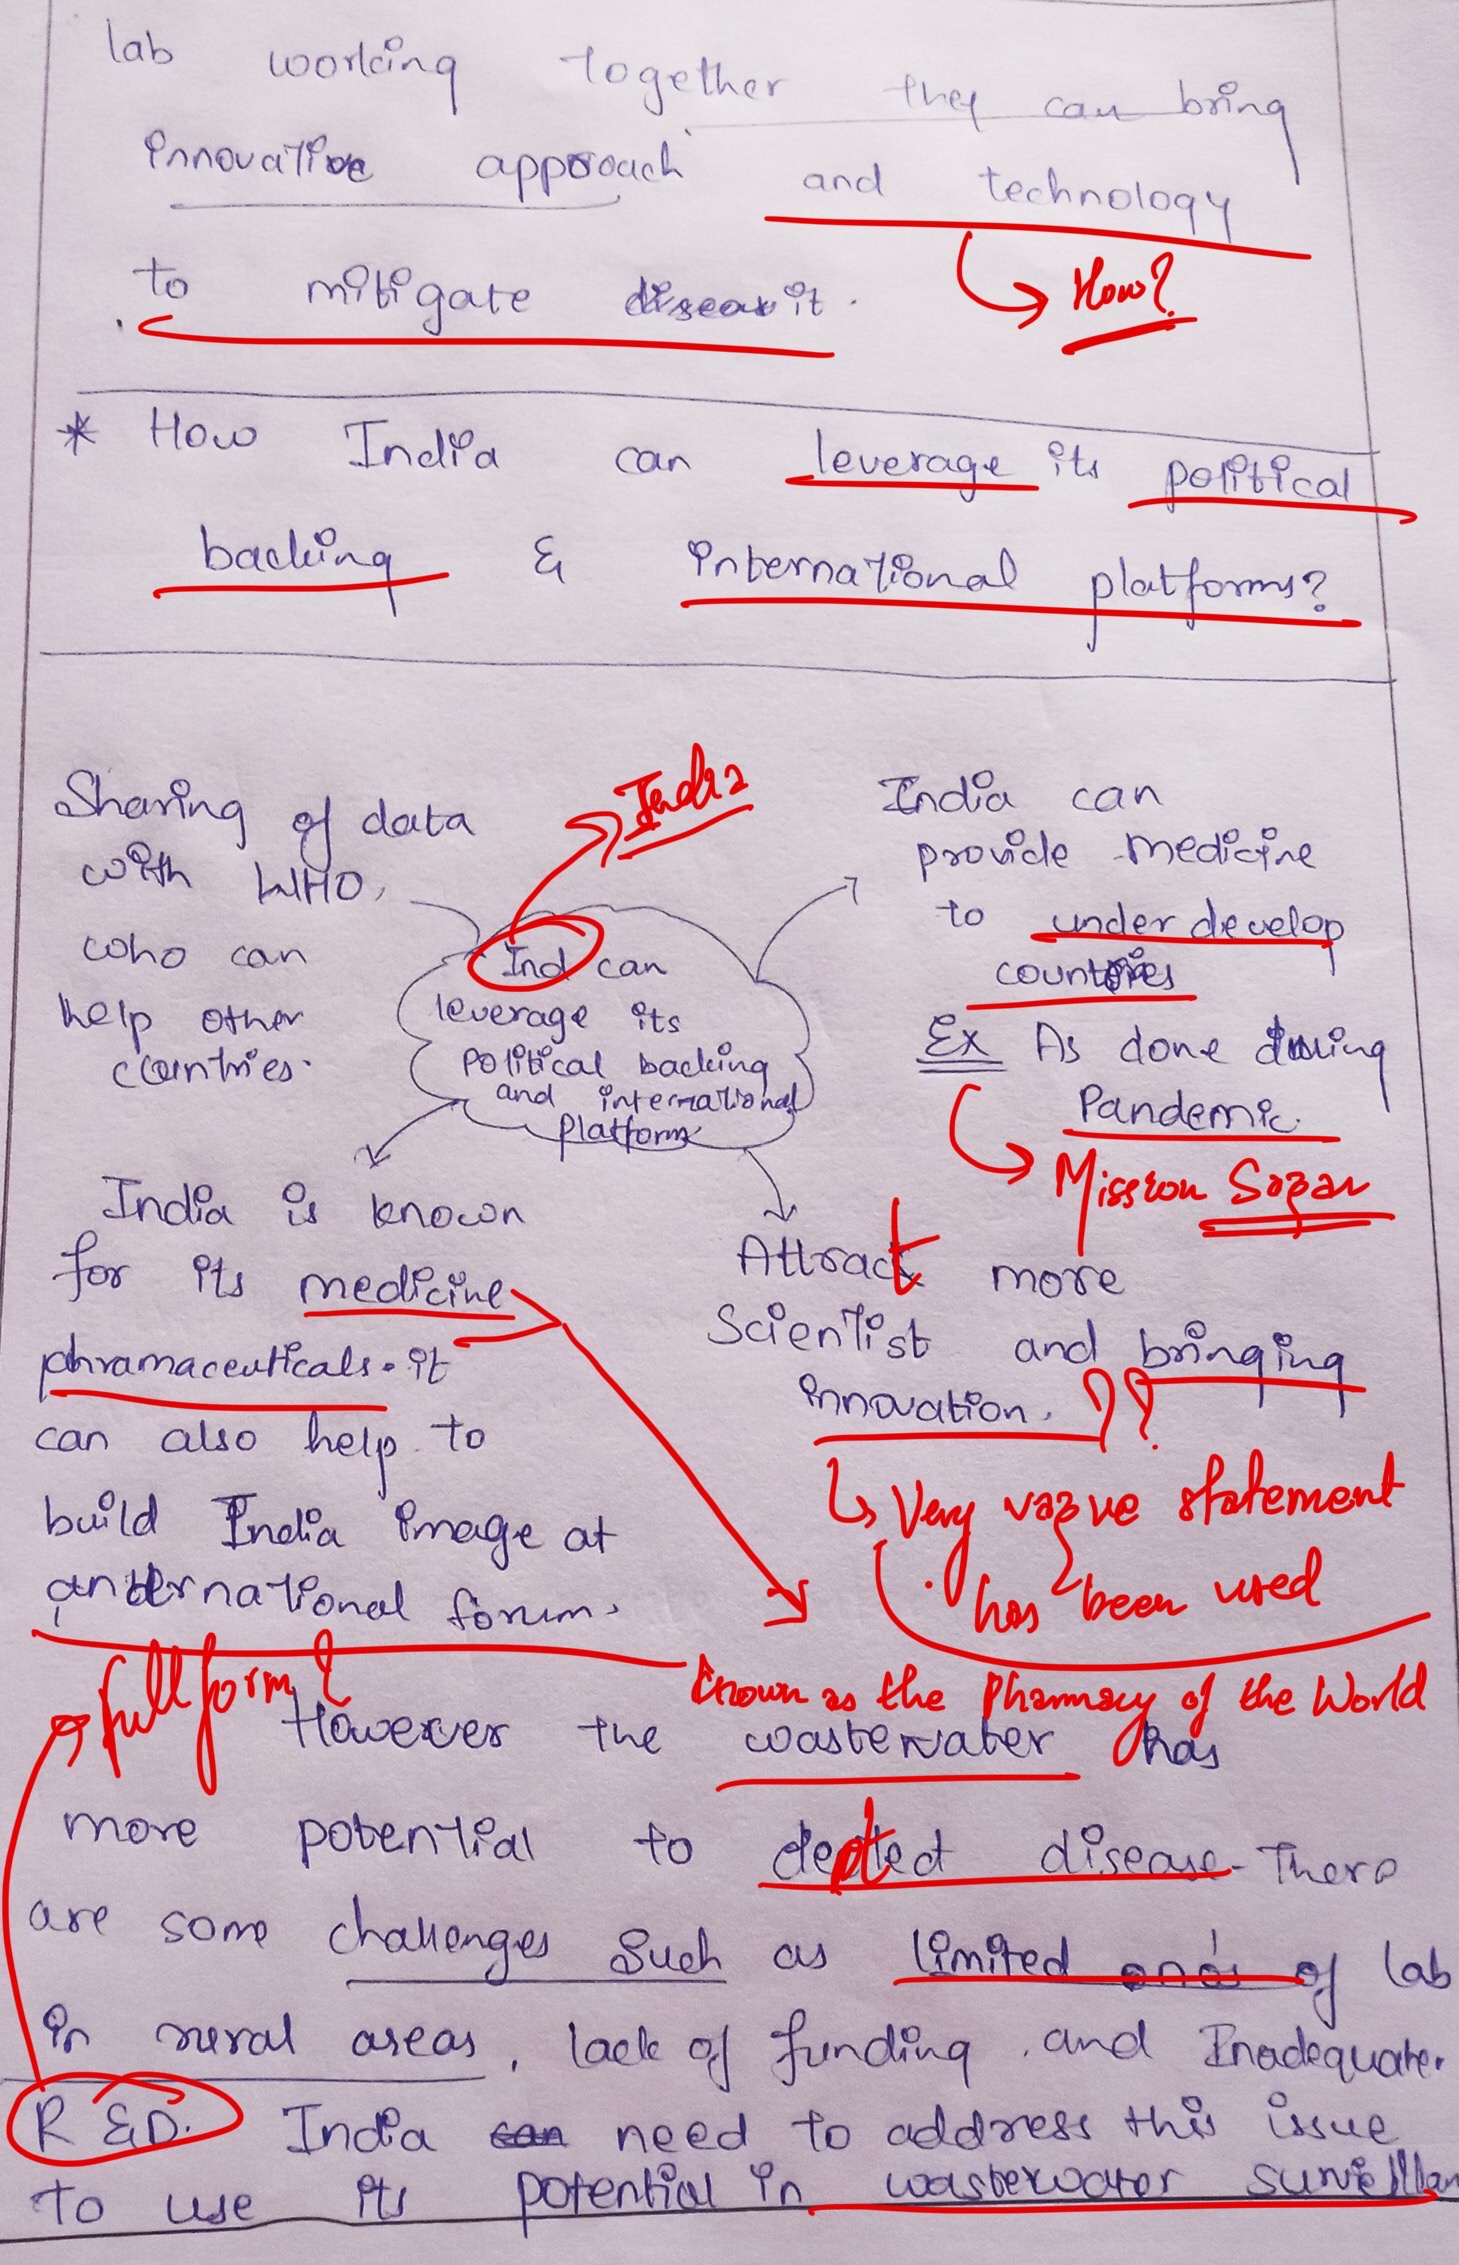 lab working together they can bring
innovative approach and technology
to mitigate disease it.
How?
* How India can leverage its political
backing & international platforms?
Sharing of data
with WHO,
who can
help other
countries.
India
Ind can
leverage its
political backing
and international
platform
India can
provide medicine
to under develop
countries
Ex As done during
Pandemic.
Mission Sagar
India is known
for its medicine
phramaceuticals. it
can also help to
build India image at
international forum.
Attract more
Scientist and bringing
innovation. ??
Very vague statement
has been used
known as the Pharmacy of the World
full form?
However the wastewater has
more potential to detect disease. There
are some challenges such as limited of lab
in rural areas, lack of funding and Inadequate
R &D. India can need to address this issue
to use its potential in wastewater surveillan